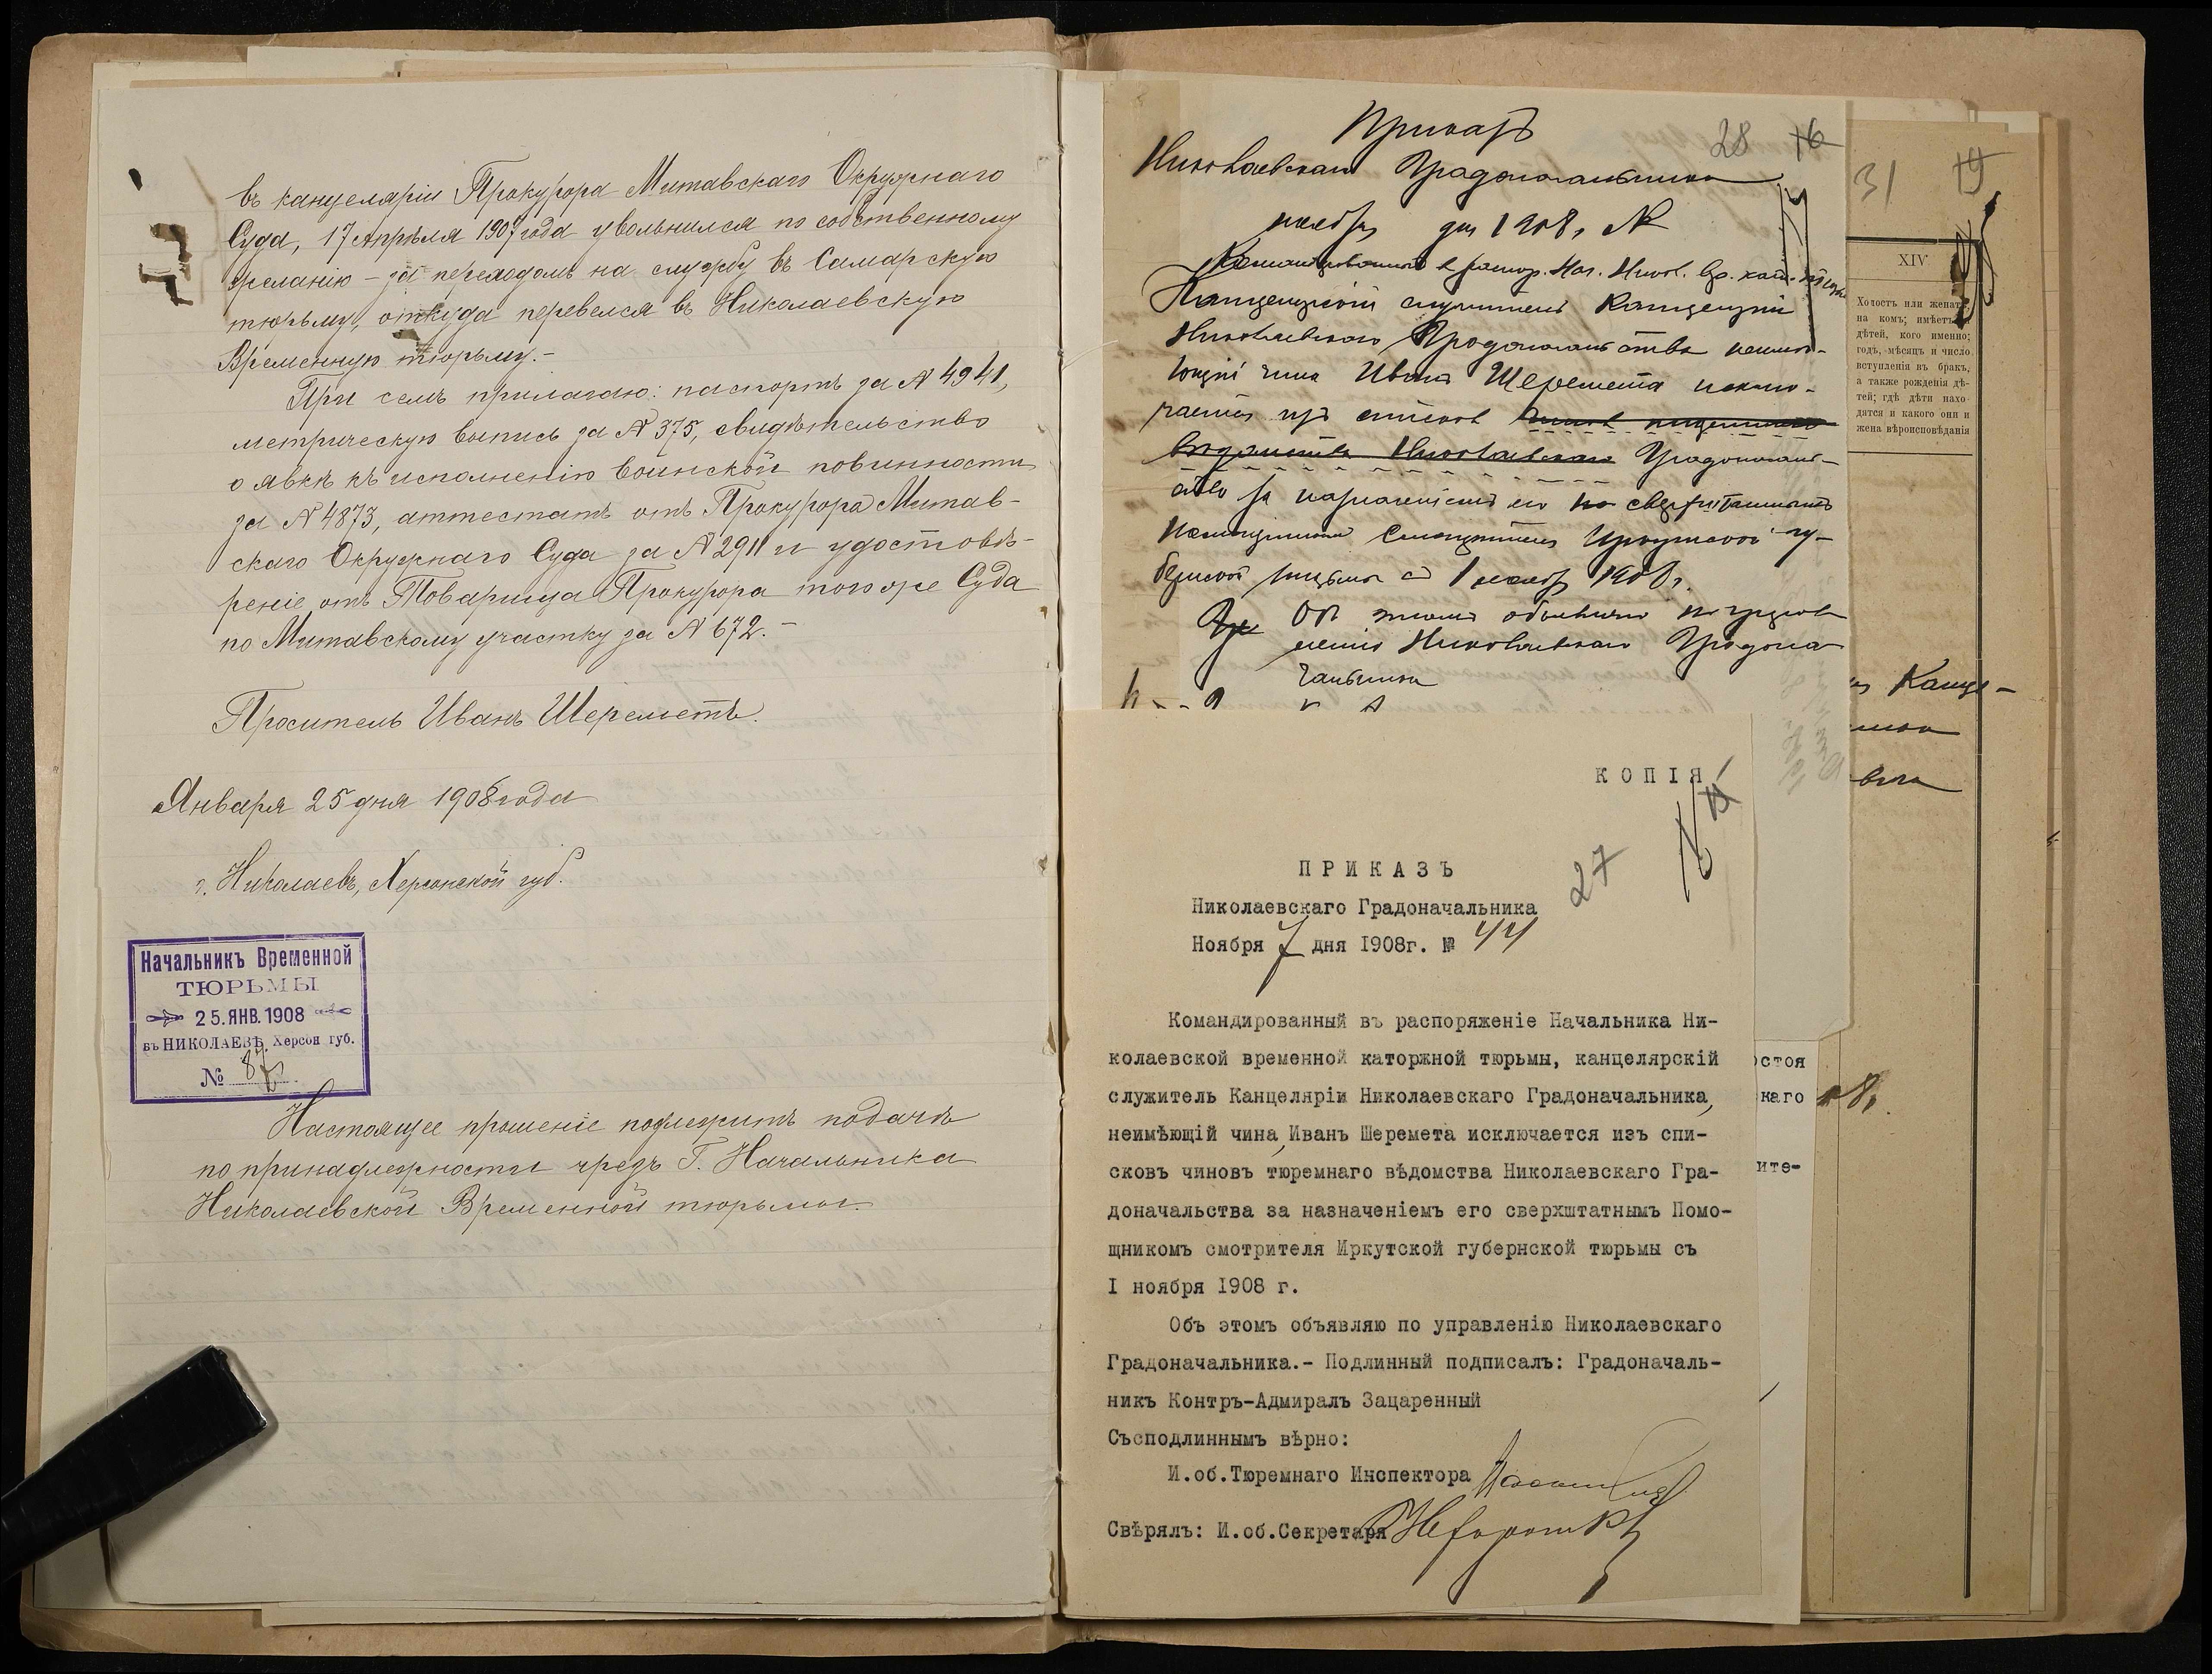 въ канцелярiи Прокурора Митавскаго Окружнаго
Суда, 17 Апрѣля 1907 года уволился по собственному
желанiю – за переходомъ на службу въ Самарскую
тюрьму, откуда перевелся въ Николаевскую
Временную тюрьму.–
При семъ прилагаю: паспортъ за № 4941,
метрическую выпись за № 375, свидѣтельство
о явкѣ къ исполненiю воинской повинности
за № 4873, аттестатъ отъ Прокурора Митав-
скаго Окружнаго Суда за № 2911 и удостовѣ-
ренiе отъ Товарища Прокурора того же Суда
по Митавскому участку за № 672.–
Проситель Иванъ Шереметъ.
Января 25 дня 1908 года
г. Николаевъ, Херсонской губ.
Начальникъ Временной
ТЮРЬМЫ
25. ЯНВ. 1908
въ НИКОЛАЕВѢ, Херсон губ.
№ 87
Настоящее прошенiе подлежитъ подачѣ
по принадлежности чрезъ Г. Начальника
Николаевской Временной тюрьмы.
Приказъ
28 16
Николаевскаго Градоначальника
ноября дня 1908 г. №
Командированный в распор. Нач. Никол. Вр. кат. тюрьмы
Канцелярскiй служитель Канцелярiи
Николаевскаго Градоначальства неимѣ-
ющiй чина Иванъ Шеремета исклю-
чается изъ списковъ чиновъ тюремнаго
вѣдомства Николаевскаго Градоначаль-
ства за назначенiемъ его сверхштатнымъ
Помощникомъ Смотрителя Иркутской гу-
бернской тюрьмы съ 1 ноября 1908 г.
Объ этомъ объявляю по управ-
ленiю Николаевскаго Градона-
чальника
31 19
XIV
Холостъ или женатъ,
на комъ; имѣетъ
дѣтей, кого именно;
годъ, мѣсяцъ и число
вступленiя въ бракъ,
а также рожденiя дѣ-
тей; гдѣ дѣти нахо-
дятся и какого они и
жена вѣроисповѣданiя
Канце-
остоя
каго
8.
ите-
КОПIЯ
27
ПРИКАЗЪ
Николаевскаго Градоначальника
Ноября 7 дня I908г. № 44
Командированный въ распоряженiе Начальника Ни-
колаевской временной каторжной тюрьмы, канцелярскiй
служитель Канцелярiи Николаевскаго Градоначальника,
неимѣющiй чина, Иванъ Шеремета исключается изъ спи-
сковъ чиновъ тюремнаго вѣдомства Николаевскаго Гра-
доначальства за назначенiемъ его сверхштатнымъ Помо-
щникомъ смотрителя Иркутской губернской тюрьмы съ
I ноября I908 г.
Объ этомъ объявляю по управленiю Николаевскаго
Градоначальника.- Подлинный подписалъ: Градоначаль-
никъ Контръ-Адмиралъ Зацаренный
Съсподлиннымъ вѣрно:
И.об.Тюремнаго Инспектора
Свѣрялъ: И.об.Секретаря